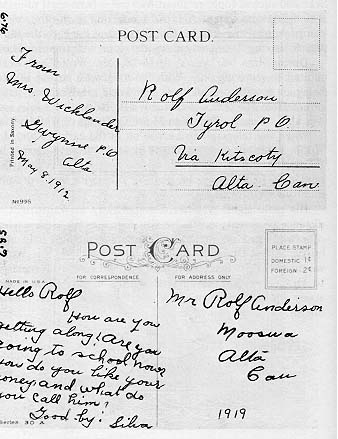 676
POST CARD.
From
Mrs Wicklander
Gwynne P.O
Alta
May 8, 1912
Printed in Saxony
No 995
Rolf Anderson
Tyrol P.O.
Via Kitscoty
Alta. Can.
POST CARD
FOR CORRESPONDENCE
FOR ADDRESS ONLY
PLACE STAMP
DOMESTIC 1¢
FOREIGN 2¢
MADE IN U.S.A.
Hello Rolf
How are you
getting along! Are you
going to school now
How do you like your
poney and what do
you call him?
Good by: Silva
Series 30 A
Mr Rolf Anderson
Mooswa
Alta
Can
1919